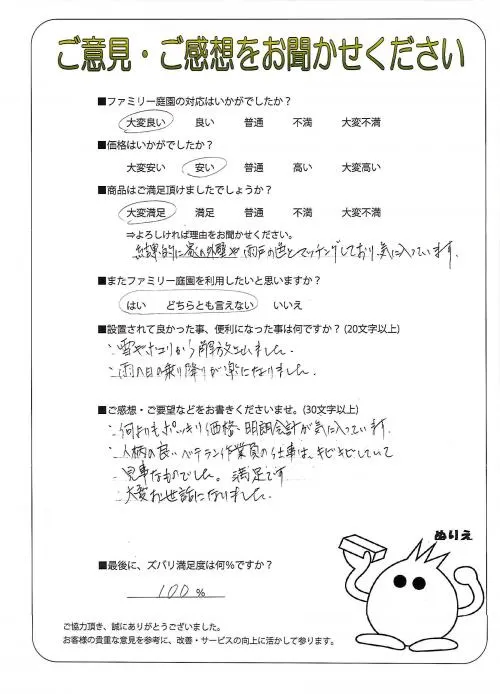 ご意見・ご感想をお聞かせください
■ファミリー庭園の対応はいかがでしたか？
大変良い 良い 普通 不満 大変不満
■価格はいかがでしたか？
大変安い 安い 普通 高い 大変高い
■商品はご満足頂けましたでしょうか？
大変満足 満足 普通 不満 大変不満
⇒よろしければ理由をお聞かせください。
結果的に家の外壁や雨戸の色とマッチングしており、気に入っています。
■またファミリー庭園を利用したいと思いますか？
はい どちらとも言えない いいえ
■設置されて良かった事、便利になった事は何ですか？(20文字以上)
雪やホコリから解放されました。
雨の日の乗り降りが楽になりました。
■ご感想・ご要望などをお書きくださいませ。(30文字以上)
何よりもポッキリ価格、明朗会計が気に入っています。
人柄の良いベテラン作業員の仕事は、キビキビしていて
見事なものでした。満足です
大変お世話になりました。
ぬりえ
■最後に、ズバリ満足度は何%ですか？
100 %
ご協力頂き、誠にありがとうございました。
お客様の貴重な意見を参考に、改善・サービスの向上に活かして参ります。